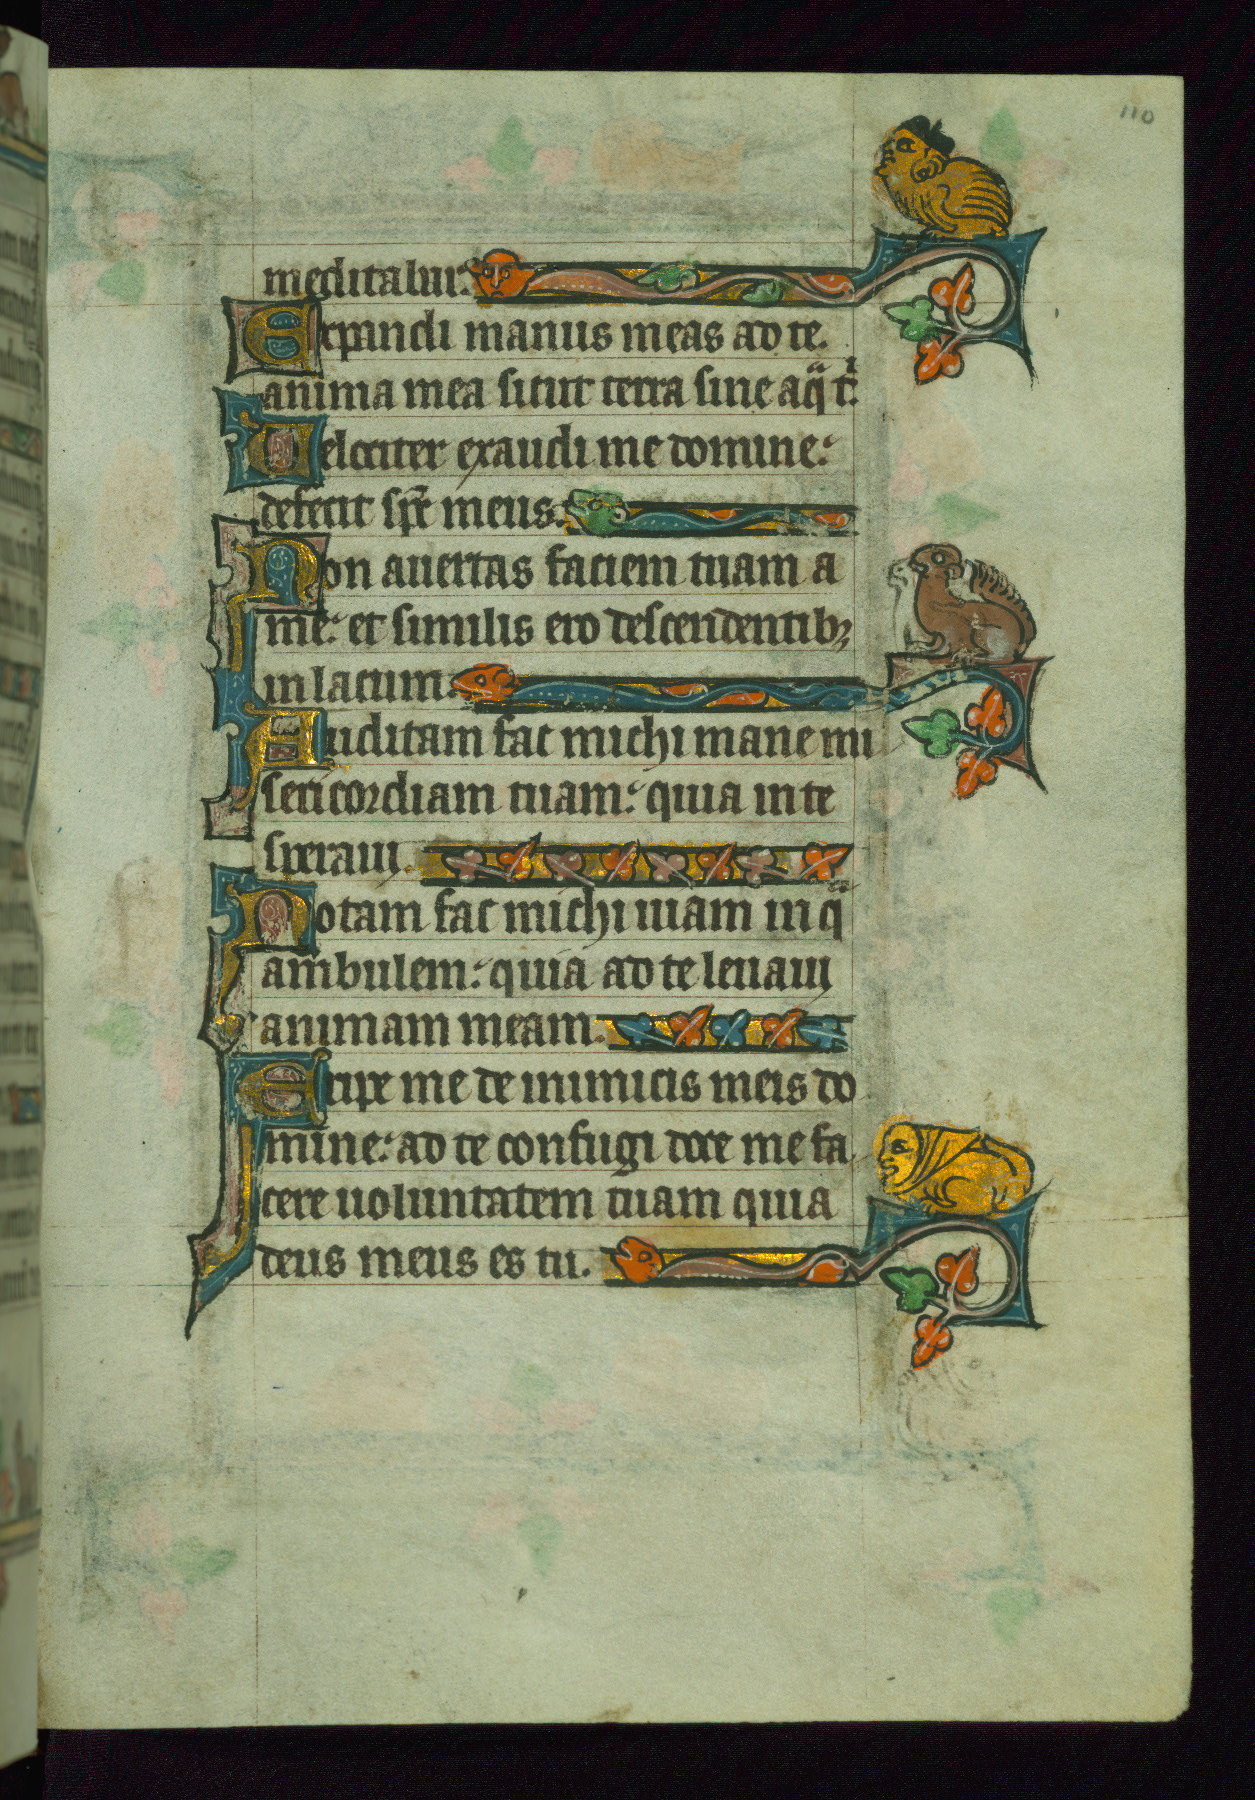 110
meditabar.
Expandi manus meas ad te.
anima mea sicut terra sine aqͣ tⁱ.
Velociter exaudi me domine:
defecit spc̄ meus.
Non auertas faciem tuam a
me: et similis ero descendentibꝫ
in lacum.
Auditam fac michi mane mi
sericordiam tuam: quia in te
speraui.
Notam fac michi uiam in q̄
ambulem: quia ad te leuaui
animam meam.
Eripe me de inimicis meis do
mine: ad te confugi doce me fa
cere uoluntatem tuam quia
deus meus es tu.